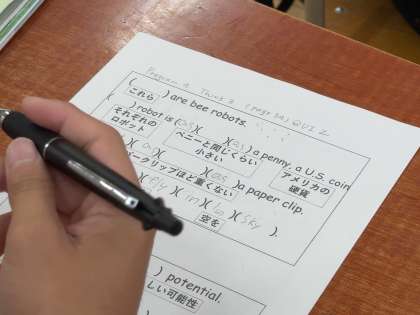 Program 4 Think 2 (Page 54) QUIZ
( ) are bee robots.
これら
) robot is (as)( )(as) a penny, a U.S. coin
それぞれの ロボット ペニーと同じくらい 小さい アメリカの 硬貨
(as) a paper clip.
ークリップほど重くない
)(fly)(in)( )(sky).
空を
) potential.
しい可能性